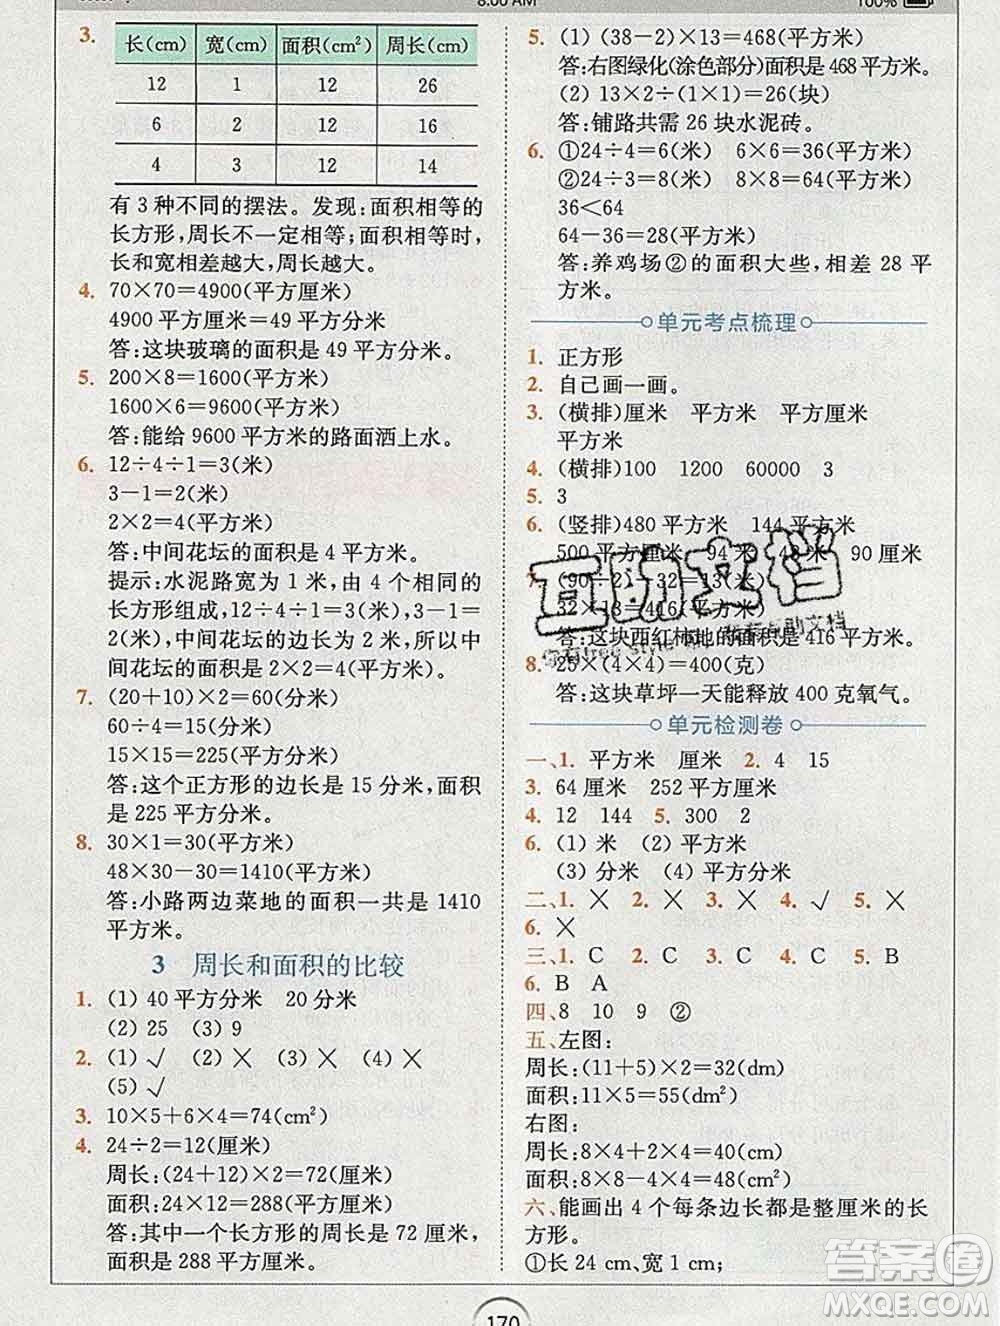 8:00 AM
100%
3.
长(cm) 宽(cm) 面积(cm²) 周长(cm)
12 1 12 26
6 2 12 16
4 3 12 14
有3种不同的摆法。发现:面积相等的
长方形,周长不一定相等;面积相等时,
长和宽相差越大,周长越大。
4. 70×70=4900(平方厘米)
4900平方厘米=49平方分米
答:这块玻璃的面积是49平方分米。
5. 200×8=1600(平方米)
1600×6=9600(平方米)
答:能给9600平方米的路面洒上水。
6. 12÷4÷1=3(米)
3-1=2(米)
2×2=4(平方米)
答:中间花坛的面积是4平方米。
提示:水泥路宽为1米,由4个相同的
长方形组成,12÷4÷1=3(米),3-1=
2(米),中间花坛的边长为2米,所以中
间花坛的面积是2×2=4(平方米)。
7. (20+10)×2=60(分米)
60÷4=15(分米)
15×15=225(平方分米)
答:这个正方形的边长是15分米,面积
是225平方分米。
8. 30×1=30(平方米)
48×30-30=1410(平方米)
答:小路两边菜地的面积一共是1410
平方米。
3 周长和面积的比较
1. (1)40平方分米 20分米
(2)25 (3)9
2. (1)√ (2)× (3)× (4)×
(5)√
3. 10×5+6×4=74(cm²)
4. 24÷2=12(厘米)
周长:(24+12)×2=72(厘米)
面积:24×12=288(平方厘米)
答:其中一个长方形的周长是72厘米,
面积是288平方厘米。
5. (1)(38-2)×13=468(平方米)
答:右图绿化(涂色部分)面积是468平方米。
(2)13×2÷(1×1)=26(块)
答:铺路共需26块水泥砖。
6. ①24÷4=6(米) 6×6=36(平方米)
②24÷3=8(米) 8×8=64(平方米)
36<64
64-36=28(平方米)
答:养鸡场②的面积大些,相差28平
方米。
单元考点梳理
1. 正方形
2. 自己画一画。
3. (横排)厘米 平方米 平方厘米
平方米
4. (横排)100 1200 60000 3
5. 3
6. (竖排)480平方米 144平方米
500平方厘米 94米 48米 90厘米
7. (90÷2)-32=13(米)
32×13=416(平方米)
答:这块西红柿地的面积是416平方米。
8. 25×(4×4)=400(克)
答:这块草坪一天能释放400克氧气。
互助文档
单元检测卷
一、1. 平方米 厘米 2. 4 15
3. 64厘米 252平方厘米
4. 12 144 5. 300 2
6. (1)米 (2)平方米
(3)分米 (4)平方米
二、1. × 2. × 3. × 4. √ 5. ×
6. ×
三、1. C 2. C 3. C 4. C 5. B
6. B A
四、8 10 9 ②
五、左图:
周长:(11+5)×2=32(dm)
面积:11×5=55(dm²)
右图:
周长:8×4+2×4=40(cm)
面积:8×8-4×4=48(cm²)
六、能画出4个每条边长都是整厘米的长
方形。
①长24 cm,宽1 cm;
170
答案圈
MXQE.COM